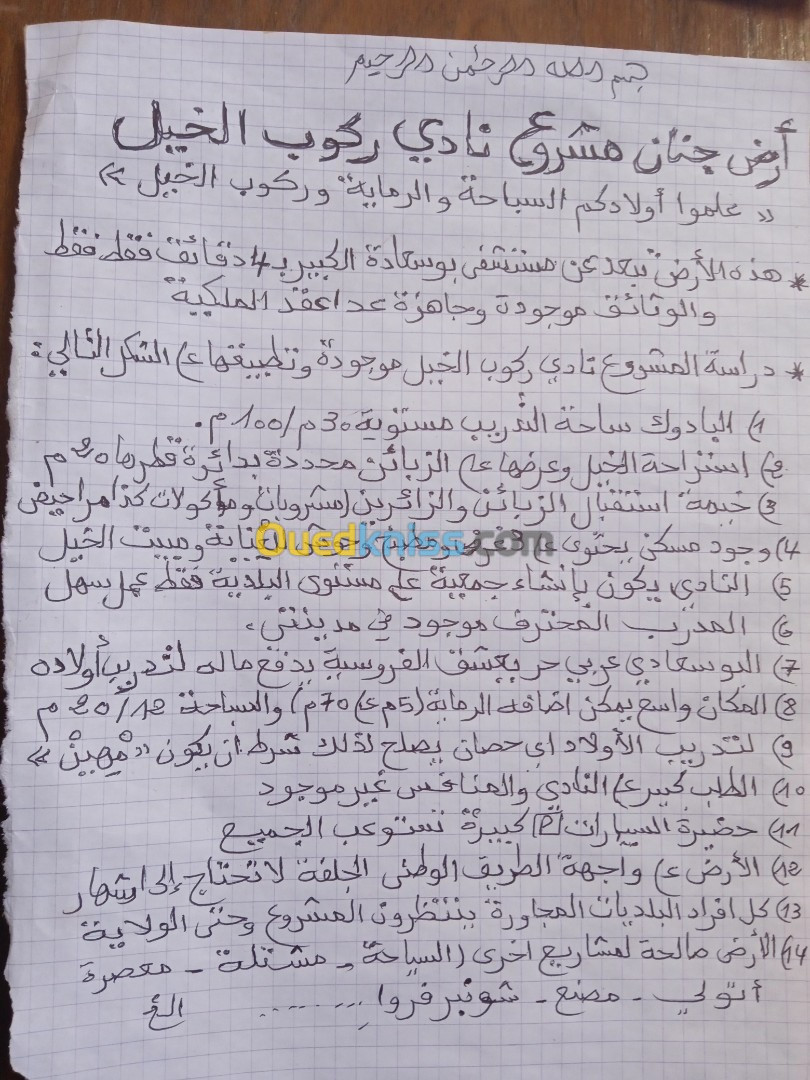 بسم الله الرحمن الرحيم
أرض جنان مشروع نادي ركوب الخيل
« علموا أولادكم السباحة والرماية وركوب الخيل »
* هذه الأرض تبعد عن مستشفى بوسعادة الكبير بـ 4 دقائق فقط فقط
والوثائق موجودة وجاهزة عدا عقد الملكية
* دراسة المشروع نادي ركوب الخيل موجودة وتطبيقها ع) الشكل التالي:
1) البادوك ساحة التدريب مستوية 30م/100م.
2) استراحة الخيل وعرضها ع) الزبائن محددة بدائرة قطرها 20م
3) خيمة استقبال الزبائن والزائرين (مشروبات ومأكولات كذا مراحيض
4) وجود مسكن يحتوي ع) 3 غرف ومطبخ ومبيت الخيل
5) النادي يكون بإنشاء جمعية على مستوى البلدية فقط عمل سهل
6) المدرب المحترف موجود في مدينتي.
7) البوسعادي عربي حر يعشق الفروسية يدفع ماله لتدريب أولاده
8) المكان واسع يمكن اضافه الرماية (5م ع) 70م) والسباحة 12/20م
9) لتدريب الأولاد اي حصان يصلح لذلك شرط ان يكون «مْهِينْ»
10) الطلب كبير ع) النادي والمنافس غير موجود
11) حضيرة السيارات P كبيرة تستوعب الجميع
12) الأرض ع) واجهة الطريق الوطني الجلفة لا تحتاج إلى اشهار
13) كل افراد البلديات المجاورة ينتظرون المشروع وحتى الولاية
14) الأرض صالحة لمشاريع اخرى (السياحة - مشتلة - معصرة
أتولي - مصنع - شونبر فروا ......... الخ
Ouedkniss.com